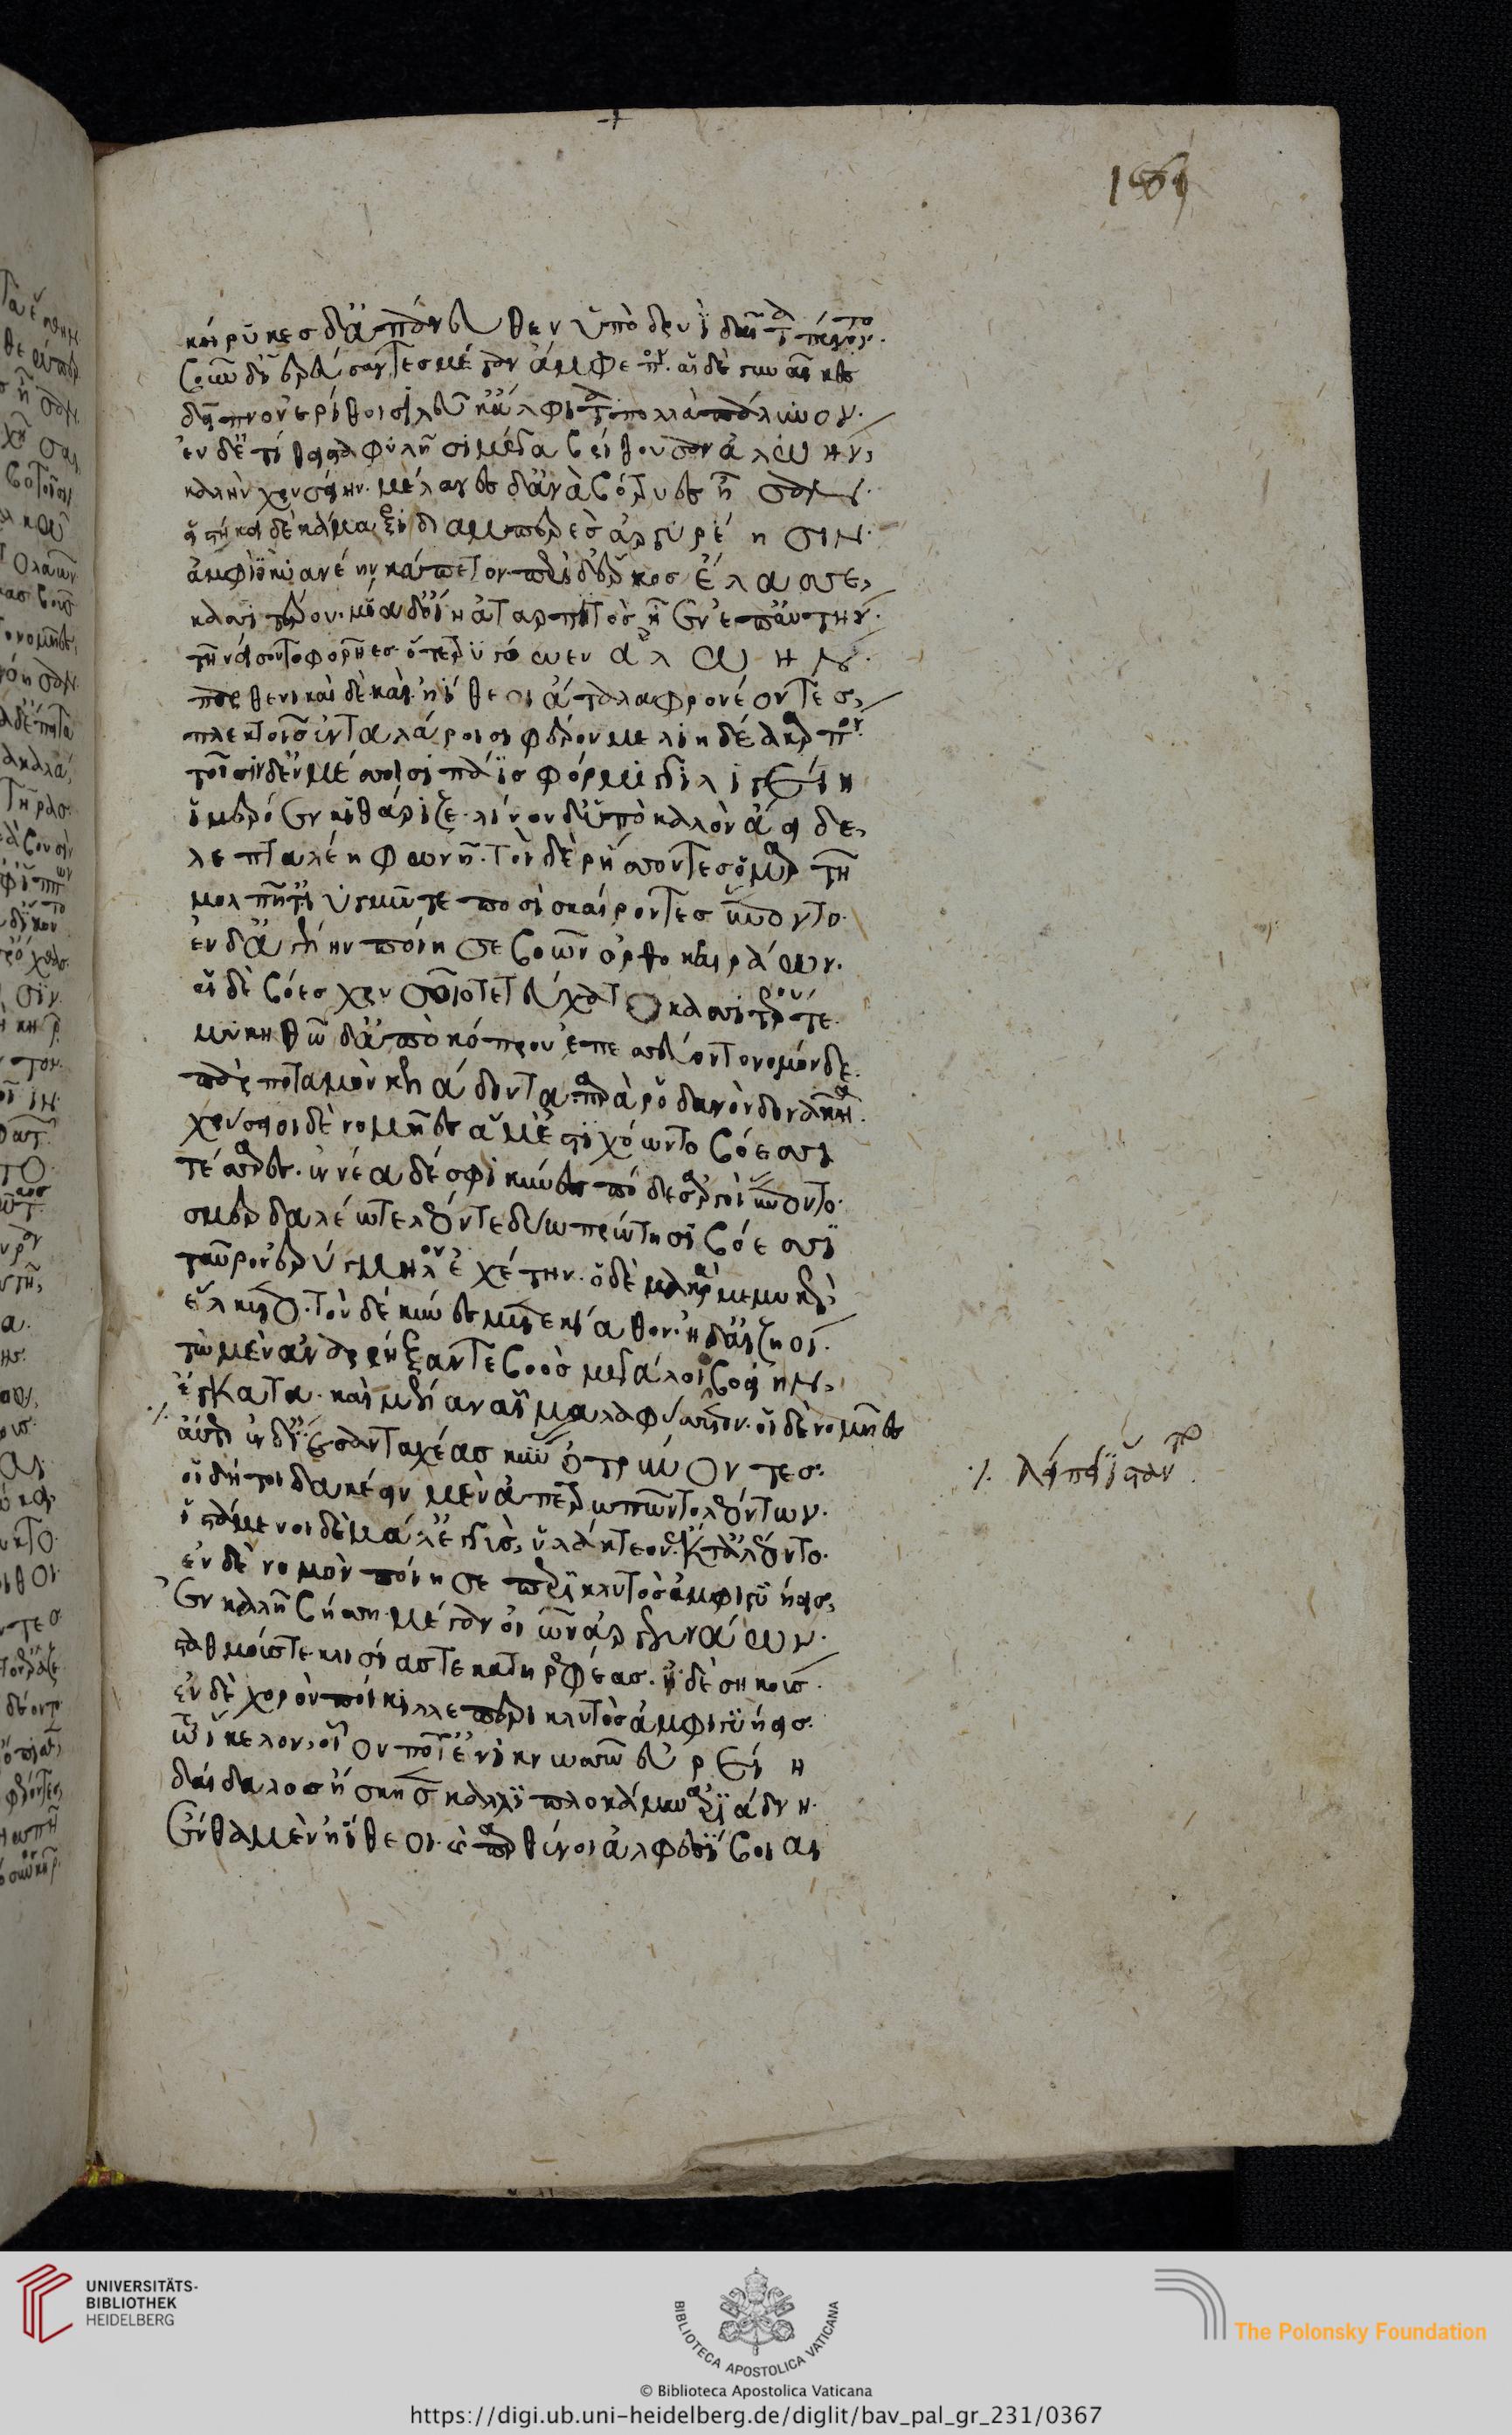 169
κήρυκες δ' ἀπάνευθεν ὑπὸ δρυῒ δαῖτα πένοντο.
βοῦν δ' ἱερεύσαντες μέγαν ἄμφεπον. αἱ δὲ γυναῖκες
δεῖπνον ἐρίθοισι λεύκ' ἄλφιτα πολλὰ πάλυνον.
ἐν δ' ἐτίθει σταφυλῇσι μέγα βρίθουσαν ἀλωήν,
καλὴν χρυσείην. μέλανες δ' ἀνὰ βότρυες ἦσαν.
εἱστήκει δὲ κάμαξι διαμπερὲς ἀργυρέησιν.
ἀμφὶ δὲ κυανέην κάπετον. περὶ δ' ἕρκος ἔλασσε,
κασσιτέρου. μία δ' οἴη ἀταρπιτὸς ἦεν ἐπ' αὐτήν.
τῇ νίσσοντο φορῆες ὅτε τρυγόωεν ἀλωήν.
παρθενικαὶ δὲ καὶ ἠΐθεοι ἀταλὰ φρονέοντες,
πλεκτοῖς ἐν ταλάροισι φέρον μελιηδέα καρπόν.
τοῖσιν δ' ἐν μέσσοισι πάϊς φόρμιγγι λιγείῃ
ἱμερόεν κιθάριζε. λίνον δ' ὑπὸ καλὸν ἄειδε,
λεπταλέῃ φωνῇ. τοὶ δὲ ῥήσσοντες ὁμαρτῇ
μολπῇ τ' ἰυγμῷ τε ποσὶ σκαίροντες ἕποντο.
ἐν δ' ἀγέλην ποίησε βοῶν ὀρθοκραιράων.
αἱ δὲ βόες χρυσοῖο τετεύχατο κασσιτέρου τε.
μυκηθμῷ δ' ἀπὸ κόπρου ἐπεσσεύοντο νομόνδε.
πὰρ ποταμὸν κελάδοντα παρὰ ῥοδανὸν δονακῆα.
χρύσειοι δὲ νομῆες ἅμ' ἐστιχόωντο βόεσσι
τέσσαρες. ἐννέα δέ σφι κύνες πόδας ἀργοὶ ἕποντο.
σμερδαλέω τε λέοντε δύω πρώτῃσι βόεσσι
ταῦρον ἐρύγμηλον ἐχέτην. ὁ δὲ μακρὰ μεμυκὼς
εἵλκετο. τὸν δὲ κύνες μετεκίαθον. ἠδ' αἰζηοί.
τὼ μὲν ἀναρρήξαντε βοὸς μεγάλοιο βοείην,
ἔγκατα. καὶ μέλαν αἷμα λαφύσσετον. οἱ δὲ νομῆες
αὔτως ἐνδίεσαν ταχέας κύνας ὀτρύνοντες.
οἱ δ' ἤτοι δακέειν μὲν ἀπετρωπῶντο λεόντων.
ἱστάμενοι δὲ μάλ' ἐγγὺς, ὑλάκτεον. ἔκ τ' ἀλέοντο.
ἐν δὲ νομὸν ποίησε περικλυτὸς ἀμφιγυήεις,
ἐν καλῇ βήσσῃ μέγαν οἰῶν ἀργεννάων.
σταθμούς τε κλισίας τε κατηρεφέας. ἰδὲ σηκούς.
ἐν δὲ χορὸν ποίκιλλε περικλυτὸς ἀμφιγυήεις.
τῷ ἴκελον, οἷόν ποτ' ἐνὶ κνωσσῷ εὐρείῃ
δαίδαλος ἤσκησεν καλλιπλοκάμῳ ἀριάδνῃ.
ἔνθα μὲν ἠΐθεοι. καὶ παρθένοι ἀλφεσίβοιαι
UNIVERSITÄTS-
BIBLIOTHEK
HEIDELBERG
BIBLIOTECA APOSTOLICA VATICANA
The Polonsky Foundation
© Biblioteca Apostolica Vaticana
https://digi.ub.uni-heidelberg.de/diglit/bav_pal_gr_231/0367